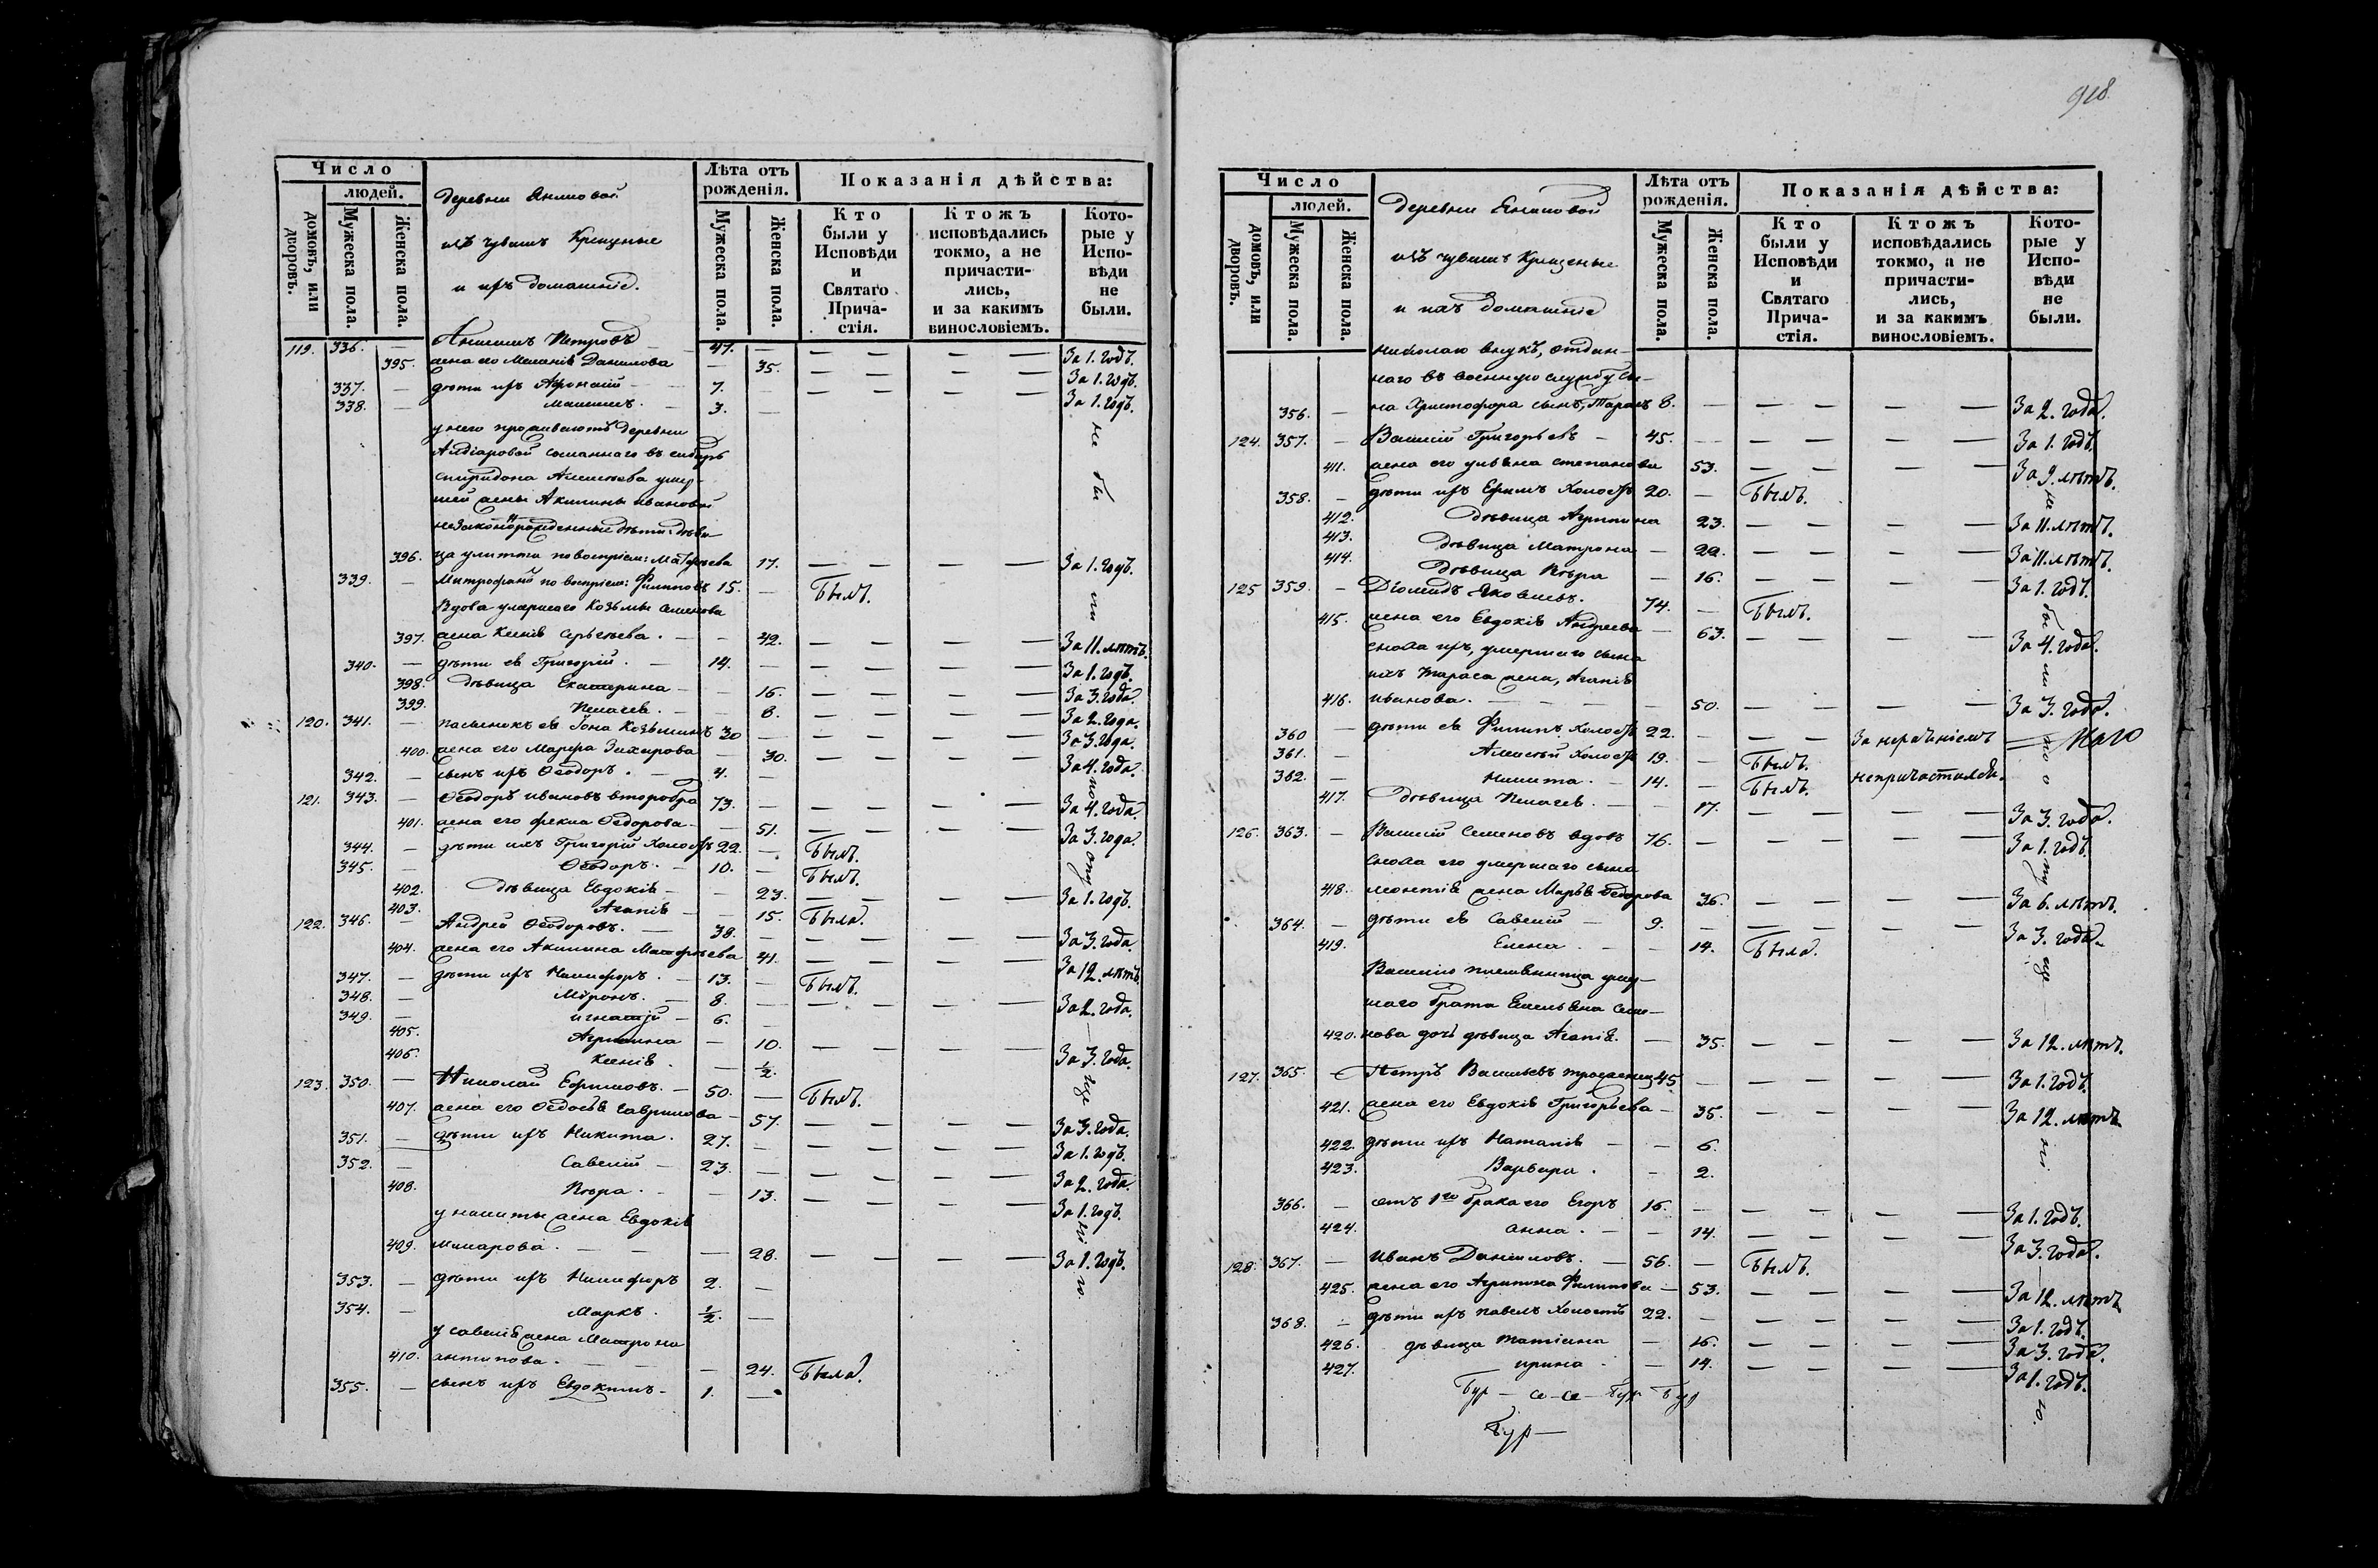 Число
людей.
домовъ, или дворовъ.
Мужеска пола.
Женска пола.
Лѣта отъ рожденія.
Мужеска пола.
Женска пола.
Показанія дѣйства:
Кто были у Исповѣди и Святаго Прича- стія.
Ктожъ исповѣдались токмо, а не причасти- лись, и за какимъ винословіемъ.
Кото- рые у Испо- вѣди не были.
деревни
изъ чувашъ Крещеные
и ихъ домашніе.
119. 336. — Петровъ — 47. — — — — — За 1. годъ.
395. жена его Меланія Данилова — 35. — — — — За 1. годъ.
337. — дѣти ихъ — 7. — — — — За 1. годъ.
338. — Максимъ. — 3. —
у него проживаютъ деревни
сосланнаго въ сибирь
спиридона Алексѣева умер-
шей жены Акилины ивановой
незаконнорожденные дѣти: дѣви-
396. ца улитта по воспріем: Матфѣева 17. — — — — За 1. годъ.
339. — Митрофанъ по воспріем: Филиповъ 15. — Былъ.
Вдова умершаго Козьмы Семенова
397. жена Ксенія Сергѣева. — — 42. — — — — За 11. лѣтъ.
340. — дѣти ея Григорій. — 14. — — — — — За 1. годъ.
398. дѣвица Екатерина — — 16. — — — — За 3. года.
399. Пелагея. — — 8. — — — — За 2. года.
120. 341. — пасынокъ ея Іона Козьминъ 30 — — — — — За 3. года.
400. жена его Марфа Захарова — 30. — — — — За 4. года.
342. — сынъ ихъ Ѳеодоръ. — 4. —
121. 343. — Ѳеодоръ ивановъ второбра 73. — — — — — За 4. года.
401. жена его фекла Ѳедорова — 51. — — — — За 3. года.
344. — дѣти ихъ Григорій Холостъ 22. — Былъ.
345. — Ѳеодоръ. — 10. — Былъ.
402. дѣвица Евдокія — — 23. — — — — За 1. годъ.
403. Агапія — — 15. Была.
122. 346. — Андрей Ѳеодоровъ. — 38. — — — — — За 3. года.
404. жена его Акилина Матфѣева 41. — — — — За 12. лѣтъ.
347. — дѣти ихъ Никифоръ. — 13. — Былъ.
348. — Миронъ. — 8. — — — — — За 2. года.
349. — игнатій — 6. —
405. Агрипина — 10. — — — — За 3. года.
406. Ксенія. — 1/2.
123. 350. — Николай Ефимовъ. — 50. — Былъ.
407. жена его Ѳедосья Гаврилова — 57. — — — — За 3. года.
351. — дѣти ихъ Никита. 27. — — — — — За 1. годъ.
352. — Савелій — 23. — — — — — За 2. года.
408. Вѣра. — — 13. — — — — За 1. годъ.
у никиты жена Евдокія
409. макарова. — — — 28. — — — — За 1. годъ.
353. — дѣти ихъ Никифоръ 2. —
354. — Маркъ. 1/2. —
у савелія жена Матрона
410. антипова. — — — 24. Была.
355. — сынъ ихъ Евдокимъ — 1. —
не бы ли по опу ще нію.
918.
Число
людей.
домовъ, или дворовъ.
Мужеска пола.
Женска пола.
Лѣта отъ рожденія.
Мужеска пола.
Женска пола.
Показанія дѣйства:
Кто были у Исповѣди и Святаго Прича- стія.
Ктожъ исповѣдались токмо, а не причасти- лись, и за какимъ винословіемъ.
Кото- рые у Испо- вѣди не были.
деревни
изъ чувашъ Крещеные
и ихъ домашніе
николаю внукъ, отдан-
наго въ военную службу сы-
356. — на Христофора сынъ, Тарасъ 8. — — — — — За 2. года.
124. 357. — Василій Григорьевъ — 45. — — — — — За 1. годъ.
411. жена его ульяна степанова 53. — — — — За 9. лѣтъ.
358. — дѣти ихъ Ефимъ Холостъ 20. — Былъ.
412. дѣвица Агрипина 23. — — — — За 11. лѣтъ.
413. дѣвица Матрона — 22. — — — — За 11. лѣтъ.
414. дѣвица Вѣра — 16. — — — — За 1. годъ.
125 359. — Діомидъ Яковлевъ. 74. — Былъ.
415. жена его Евдокія Андреева — 63. — — — — За 4. года.
сноха ихъ, умершаго сына
ихъ тараса жена, Агапія
416. иванова. — — — 50. — — — — За 3. года.
360 — дѣти ея Филипъ Холостъ 22. — — — За нерачніемъ
361. — Алексѣй Холостъ 19. — Былъ.
362. — Никита. — 14. — Былъ. непричастился.
417. дѣвица Пелагея. — — 17. — — — — За 3. года.
126. 363. — Василій Семеновъ вдовъ 76. — — — — — За 1. годъ.
сноха его умершаго сына
418. леонтія жена Марья Ѳедорова 36. — — — — За 6. лѣтъ.
364. — дѣти ея Савелій — 9. — — — — — За 3. года.
419. Елена. — — 14. Была.
Василію племянница умер-
шаго брата Емельяна Семе-
420. нова дочь дѣвица Агапія. — 35. — — — — За 12. лѣтъ.
127. 365. — Петръ Васильевъ троеженецъ 45. — — — — — За 1. годъ.
421. жена его Евдокія Григорьева — 35. — — — — За 12. лѣтъ.
422. дѣти ихъ Наталія — — 6.
423. Варвара. — 2.
366. — отъ 1го брака его Егоръ 16. — — — — — За 1. годъ.
424. анна. — — 14. — — — — За 3. года.
128. 367. — Иванъ Даниловъ. — 56. — Былъ.
425. жена его Агрипина Филипова — 53. — — — — За 12. лѣтъ
368. — дѣти ихъ павелъ Холостъ 22. — — — — — За 1. годъ.
426. дѣвица татіана — 16. — — — — За 3. года.
427. ирина. — 14. — — — — За 1. годъ.
не бы ли по опу ще нію.